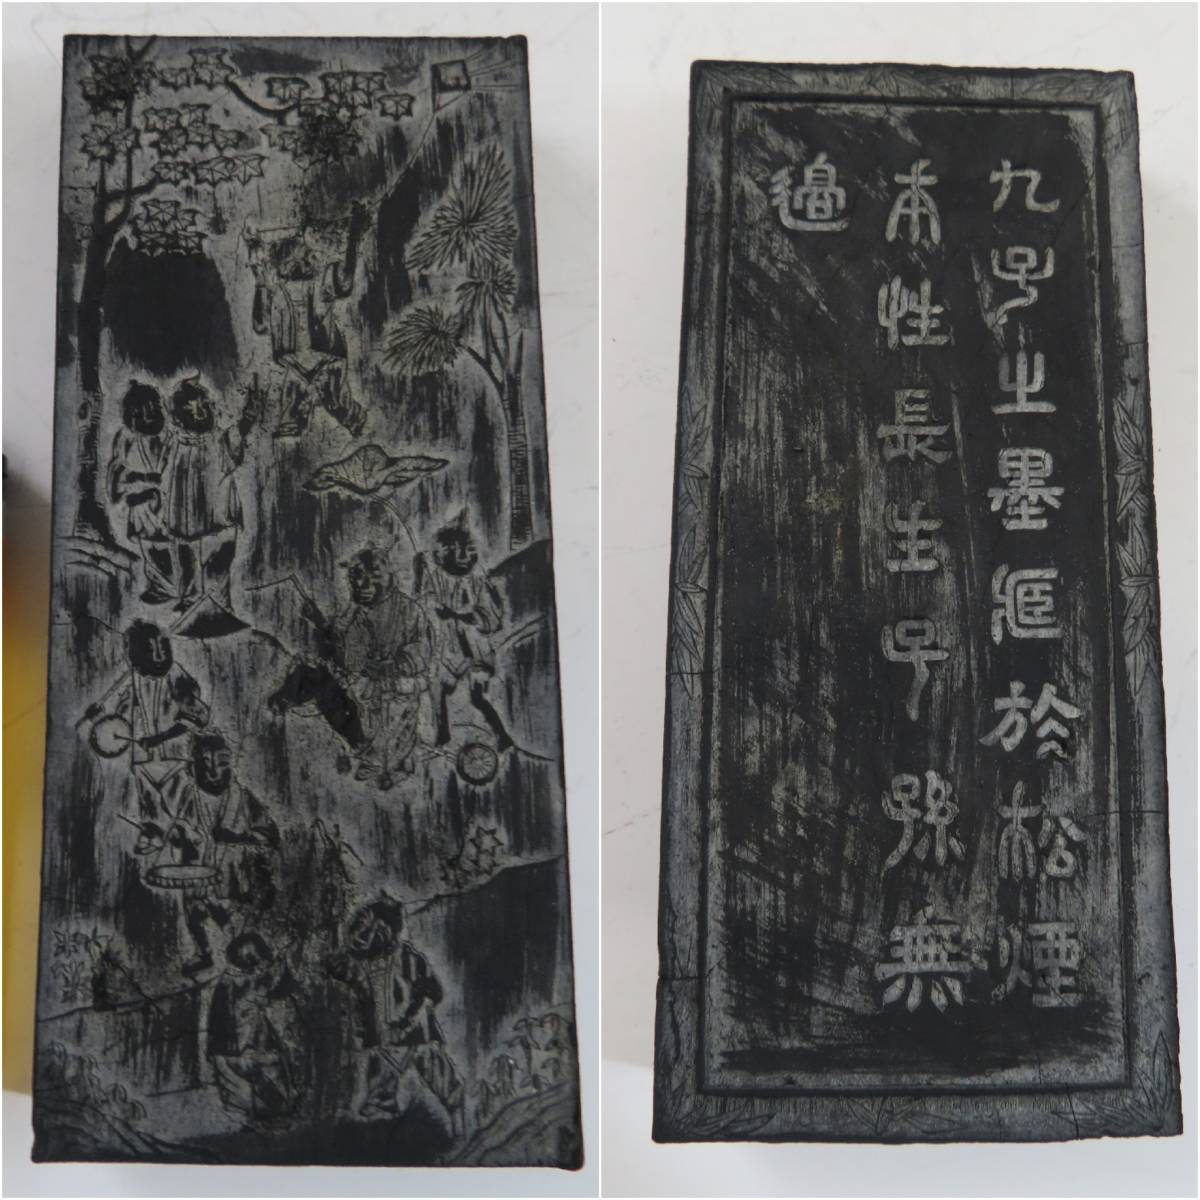 九子之墨匧於松煙
本性長生子孫無
邊